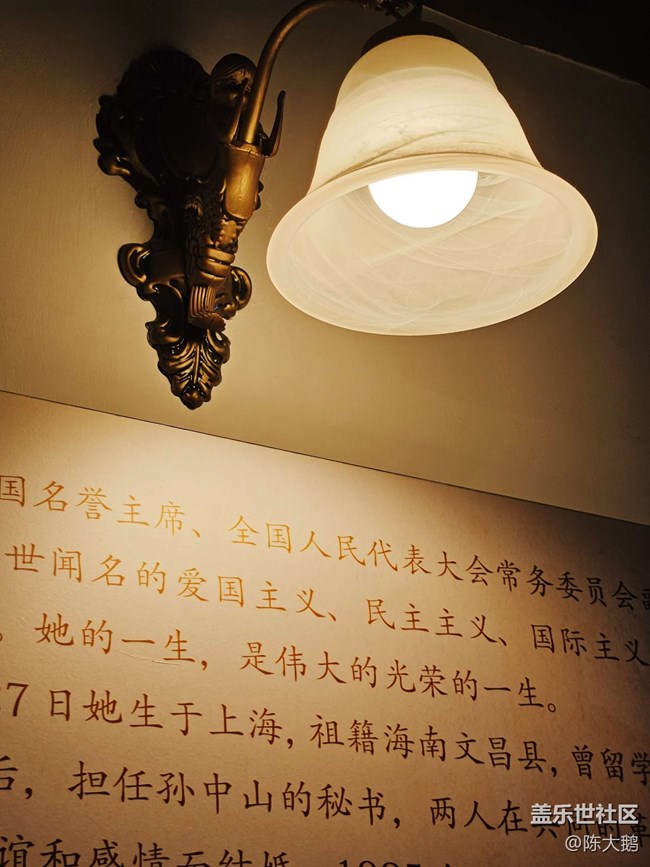 国名誉主席、全国人民代表大会常务委员会
世闻名的爱国主义、民主主义、国际主义
。她的一生，是伟大的光荣的一生。
7日她生于上海，祖籍海南文昌县，曾留学
后，担任孙中山的秘书，两人在共同的革
谊和感情而结婚
盖乐世社区
@陈大鹅